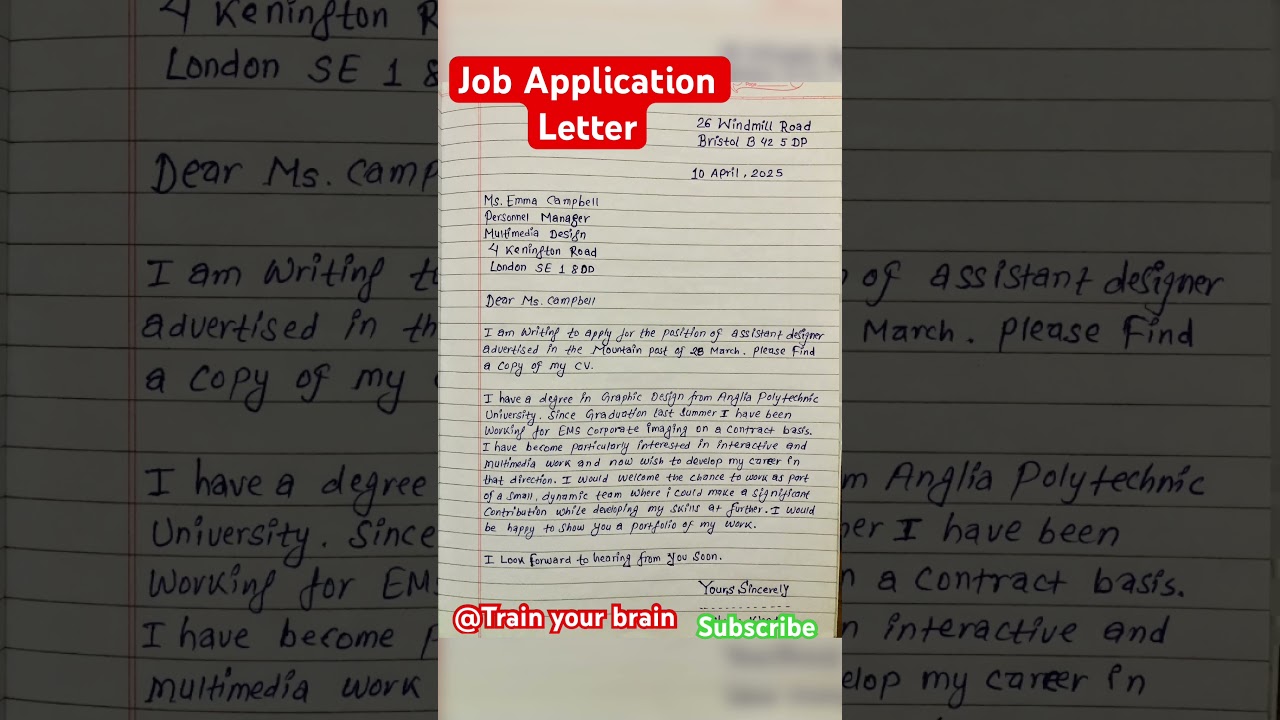 Job Application
Letter
26 Windmill Road
Bristol B 42 5 DP
10 April, 2025
Ms. Emma Campbell
Personnel Manager
Multimedia Design
4 Kenington Road
London SE 1 8 DD
Dear Ms. Campbell
I am writing to apply for the position of assistant designer
advertised in the Mountain post of 28 March. Please Find
a copy of my CV.
I have a degree in Graphic Design from Anglia Polytechnic
University. Since Graduation last summer I have been
working for EMS corporate imaging on a contract basis.
I have become particularly interested in interactive and
multimedia work and now wish to develop my career in
that direction. I would welcome the chance to work as part
of a small, dynamic team where i could make a significant
contribution while developing my skills at further. I would
be happy to show you a portfolio of my work.
I Look forward to hearing from you soon.
Yours Sincerely
@Train your brain
Subscribe
4 Kenington R
London SE 1 8
Dear Ms. Camp
I am writing t
advertised in th
a copy of my
I have a degree
University. Since
working for EMS
I have become p
multimedia work
of assistant designer
March. Please Find
m Anglia Polytechnic
er I have been
n a contract basis.
n interactive and
elop my career in